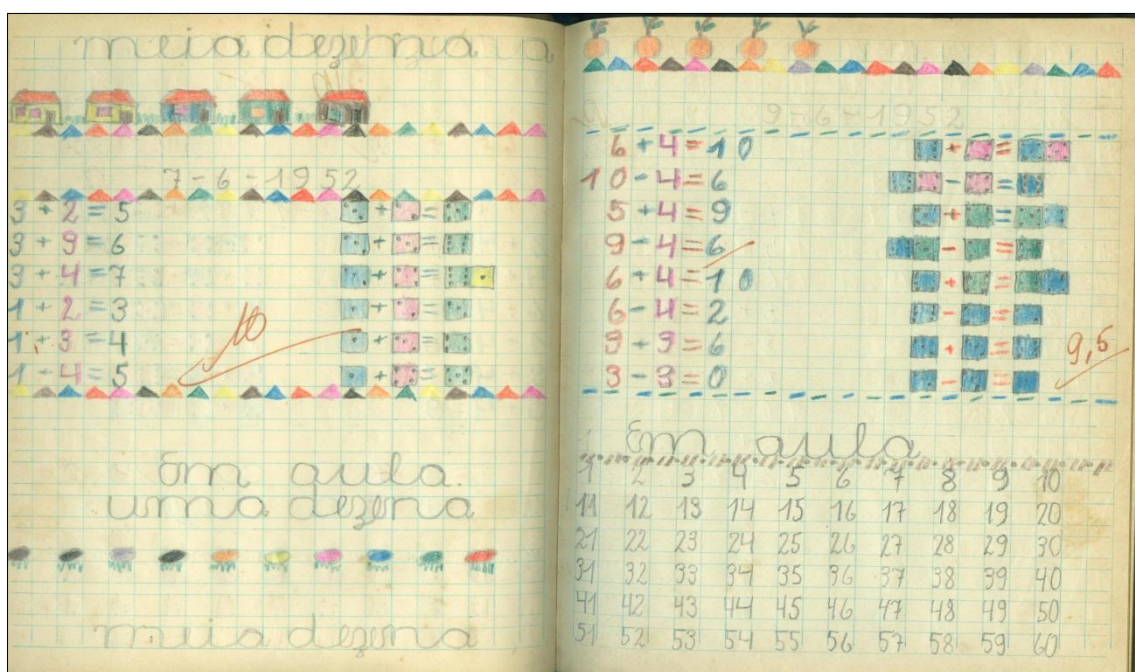 meia dezena
7-6-1952
3+2=5
3+9=6
3+4=7
1+2=3
1+3=4
1+4=5
10
Em aula.
uma dezena
meia dezena
9-6-1952
6+4=10
10-4=6
5+4=9
9-4=6
6+4=10
6-4=2
9+9=6
3-3=0
9,5
Em aula
1 2 3 4 5 6 7 8 9 10
11 12 13 14 15 16 17 18 19 20
21 22 23 24 25 26 27 28 29 30
31 32 33 34 35 36 37 38 39 40
41 42 43 44 45 46 47 48 49 50
51 52 53 54 55 56 57 58 59 60